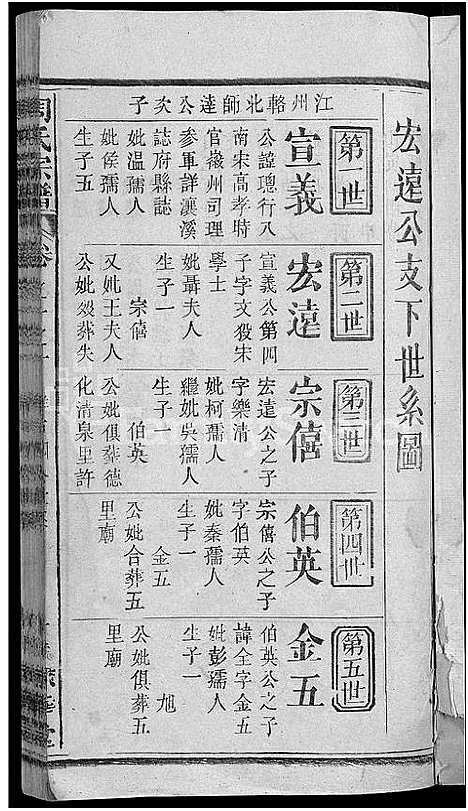 宏遠公支下世系圖
江州輅北師達公次子
第一世
宣義
公諱璁行八
南宋高孝時
官嶽州司理
參軍詳瀼溪
誌府縣誌
妣溫孺人
妣侯孺人
生子五
第二世
宏遠
宣義公第四
子字文殁宋
學士
妣聶夫人
生子一
宗僖
又妣王夫人
公妣殁葬失
第三世
宗僖
宏遠公之子
字樂清
妣柯孺人
繼妣吳孺人
生子一
伯英
公妣俱葬德
化清泉里許
第四世
伯英
宗僖公之子
字伯英
妣秦孺人
生子一
金五
公妣合葬五
里廟
第五世
金五
伯英公之子
諱全字金五
妣彭孺人
生子一
旭
公妣俱葬五
里廟
周氏宗譜